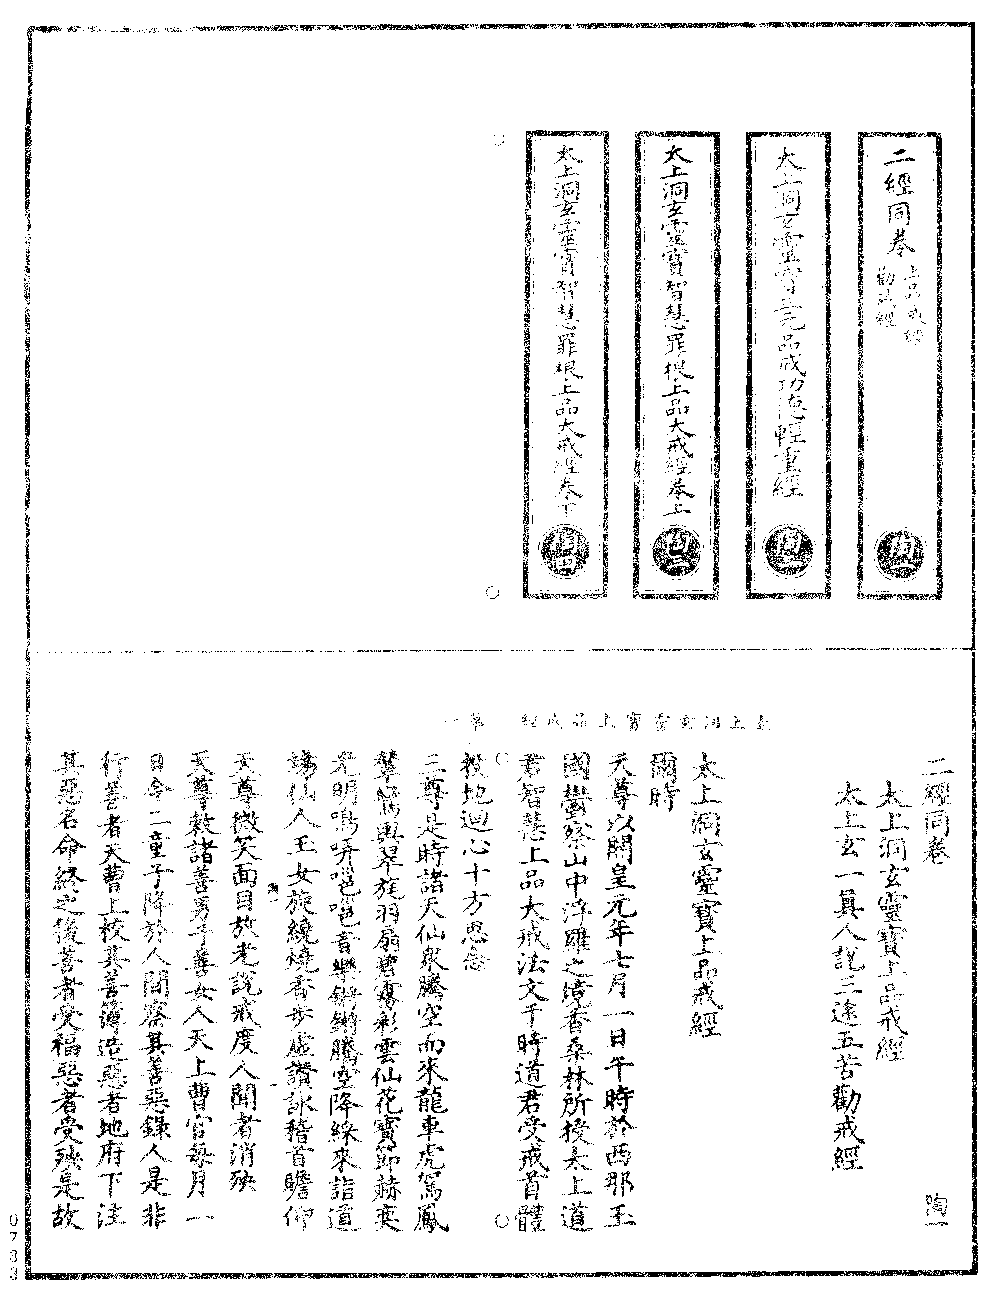 二經同卷
上品戒經
勸戒經
太上洞玄靈寶三元品戒功德輕重經
太上洞玄靈寶智慧罪根上品大戒經卷上
太上洞玄靈寶智慧罪根上品大戒經卷下
太上洞玄靈寶上品戒經 第一
二經同卷 陶一
太上洞玄靈寶上品戒經
太上玄一真人說三途五苦勸戒經
太上洞玄靈寶上品戒經
爾時
天尊以開皇元年七月一日午時於西那玉
國鬱察山中浮羅之境香桑林所授太上道
君智慧上品大戒法文于時道君受戒首體
投地迴心十方思念
三尊是時諸天仙眾騰空而來龍車虎駕鳳
輦鸞輿翠旌羽扇彩雲仙花寶節赫奕
光明鳴嘯嗈嗈音樂鏘鏘騰空降綵來詣道
場仙人玉女旋繞燒香步虛讚詠稽首瞻仰
天尊微笑面目放光說戒度人聞者消殃
天尊敕諸善男子善女人天上曹官每月一
日令二童子降於人間察其善惡錄人是非
行善者天曹上校其善簿造惡者地府下注
其惡名命終之後善者受福惡者受殃是故
0783